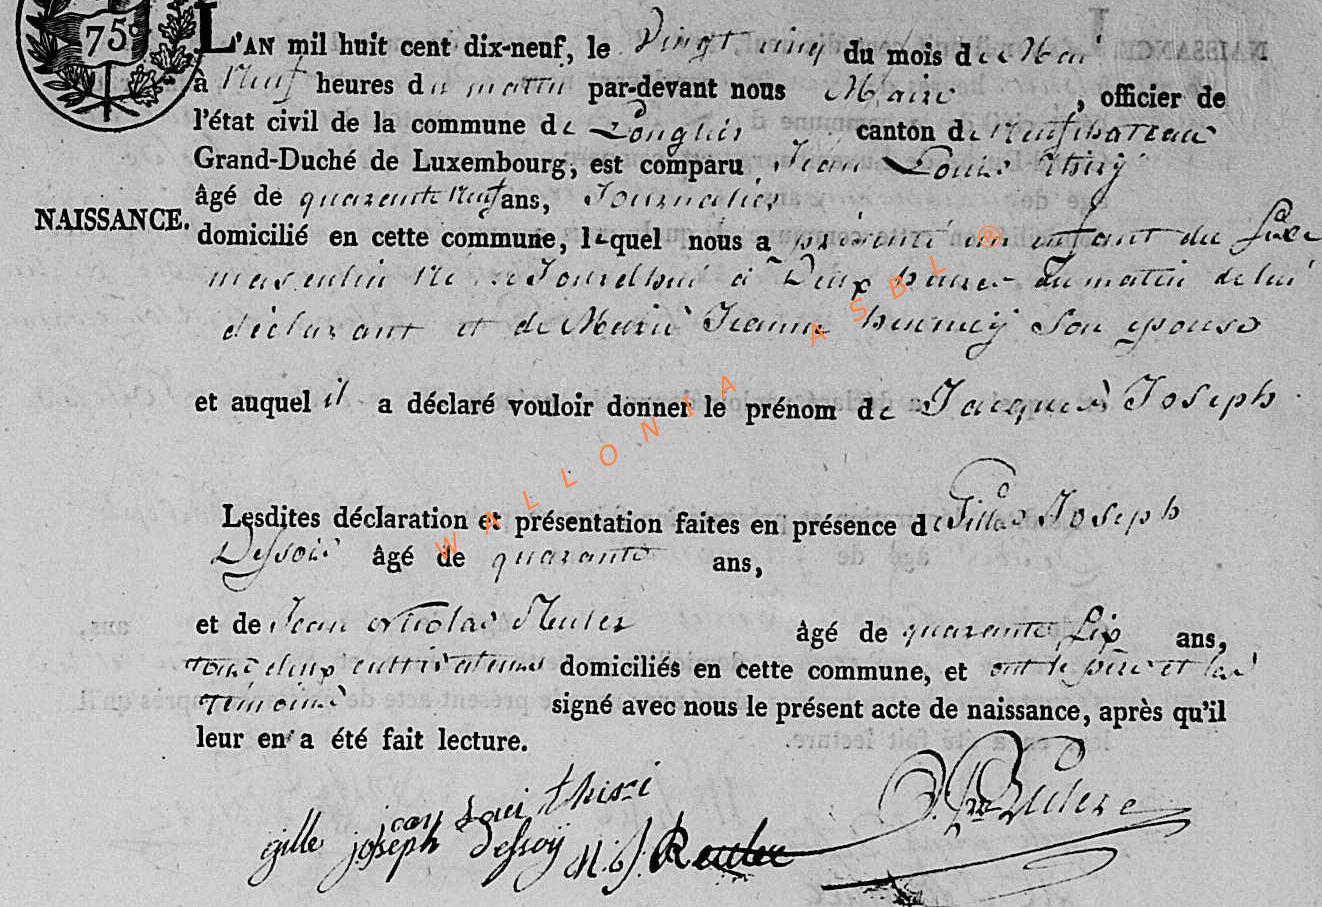 75c
L'AN mil huit cent dix-neuf, le Vingt cinq du mois de Mai
à Neuf heures du matin par-devant nous Maire, officier de
l'état civil de la commune de Longlier canton de Neufchateau
Grand-Duché de Luxembourg, est comparu Jean Louis Thiry
âgé de quarente Neuf ans, Journalier
NAISSANCE.
domicilié en cette commune, lequel nous a présenté un enfant du Sexe
masculin Né aujourdhui à Deux heures du matin de lui
déclarant et de Marie Jeanne henneij Son epouse
et auquel il a déclaré vouloir donner le prénom de Jacques Joseph
Lesdites déclaration et présentation faites en présence de Gilles Joseph
Dessoie âgé de quarante ans,
et de Jean Nicolas âgé de quarante Six ans,
tous deux cultivateurs domiciliés en cette commune, et ont le père et les
témoins signé avec nous le présent acte de naissance, après qu'il
leur en a été fait lecture.
jean Loui thiri
gille joseph dessoÿ
WALLONIA ASBL ®